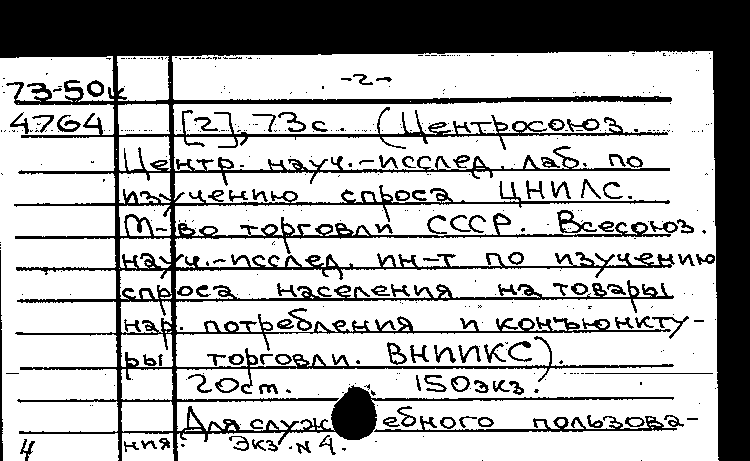 -2-
73-50к
4764 [2], 73с. (Центросоюз.
Центр. науч.-исслед. лаб. по
изучению спроса ЦНИЛС.
М-во торговли СССР. Всесоюз.
науч.-исслед. ин-т по изучению
спроса населения на товары
нар. потребления и конъюнкту-
ры торговли. ВНИИКС).
20см. 150экз.
Для служебного пользова-
4 ния. Экз. N 4.